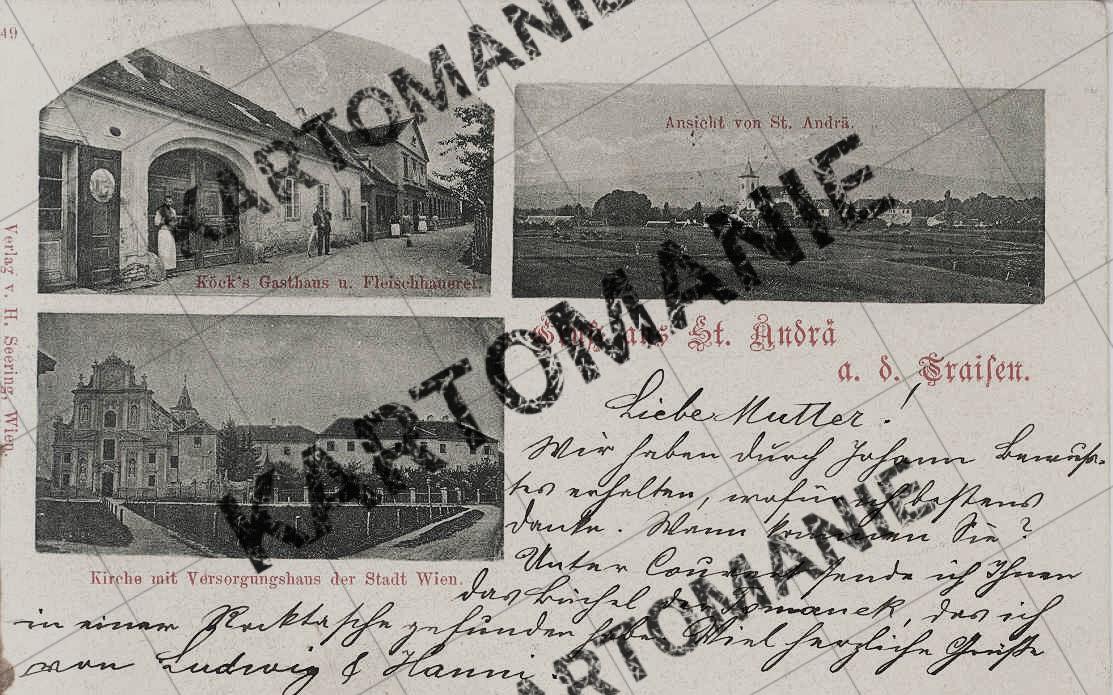 49
KARTOMANIE
Ansicht von St. Andrä.
Köck's Gasthaus u. Fleischhauerei.
Verlag v. H. Seering, Wien.
KARTOMANIE
Gruß aus St. Andrä
a. d. Traisen.
Liebe Mutter!
Wir haben durch Johann Bewuss-
tes erhalten, wofür ich bestens
danke. Wann kommen Sie?
Unter Couvert sende ich Ihnen
Kirche mit Versorgungshaus der Stadt Wien.
das Büchel der Domanek, das ich
in einer Rocktasche gefunden habe. Viel herzliche Grüße
von Ludwig & Hanni.
KARTOMANIE